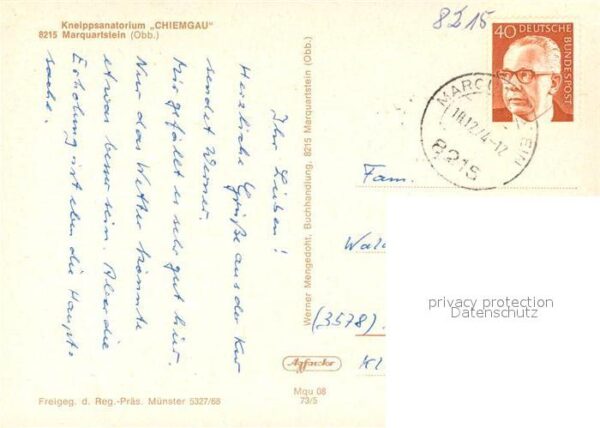 Kneippsanatorium „CHIEMGAU"
8215 Marquartstein (Obb.)
Ihr Lieben!
Herzliche Grüße aus der Kur
sendet Werner.
Mir gefällt es sehr gut hier.
Nur das Wetter könnte
etwas besser sein. Aber die
Erholung ist eben die Haupt-
sache.
Werner Mengedoht, Buchhandlung, 8215 Marquartstein (Obb.)
8215
40
DEUTSCHE
BUNDESPOST
MARQU
TEIN
18.12.74-12
8215
Fam.
Wal
(3578)
Kl
privacy protection
Datenschutz
Agfacolor
Mqu 08
73/5
Freigeg. d. Reg.-Präs. Münster 5327/68